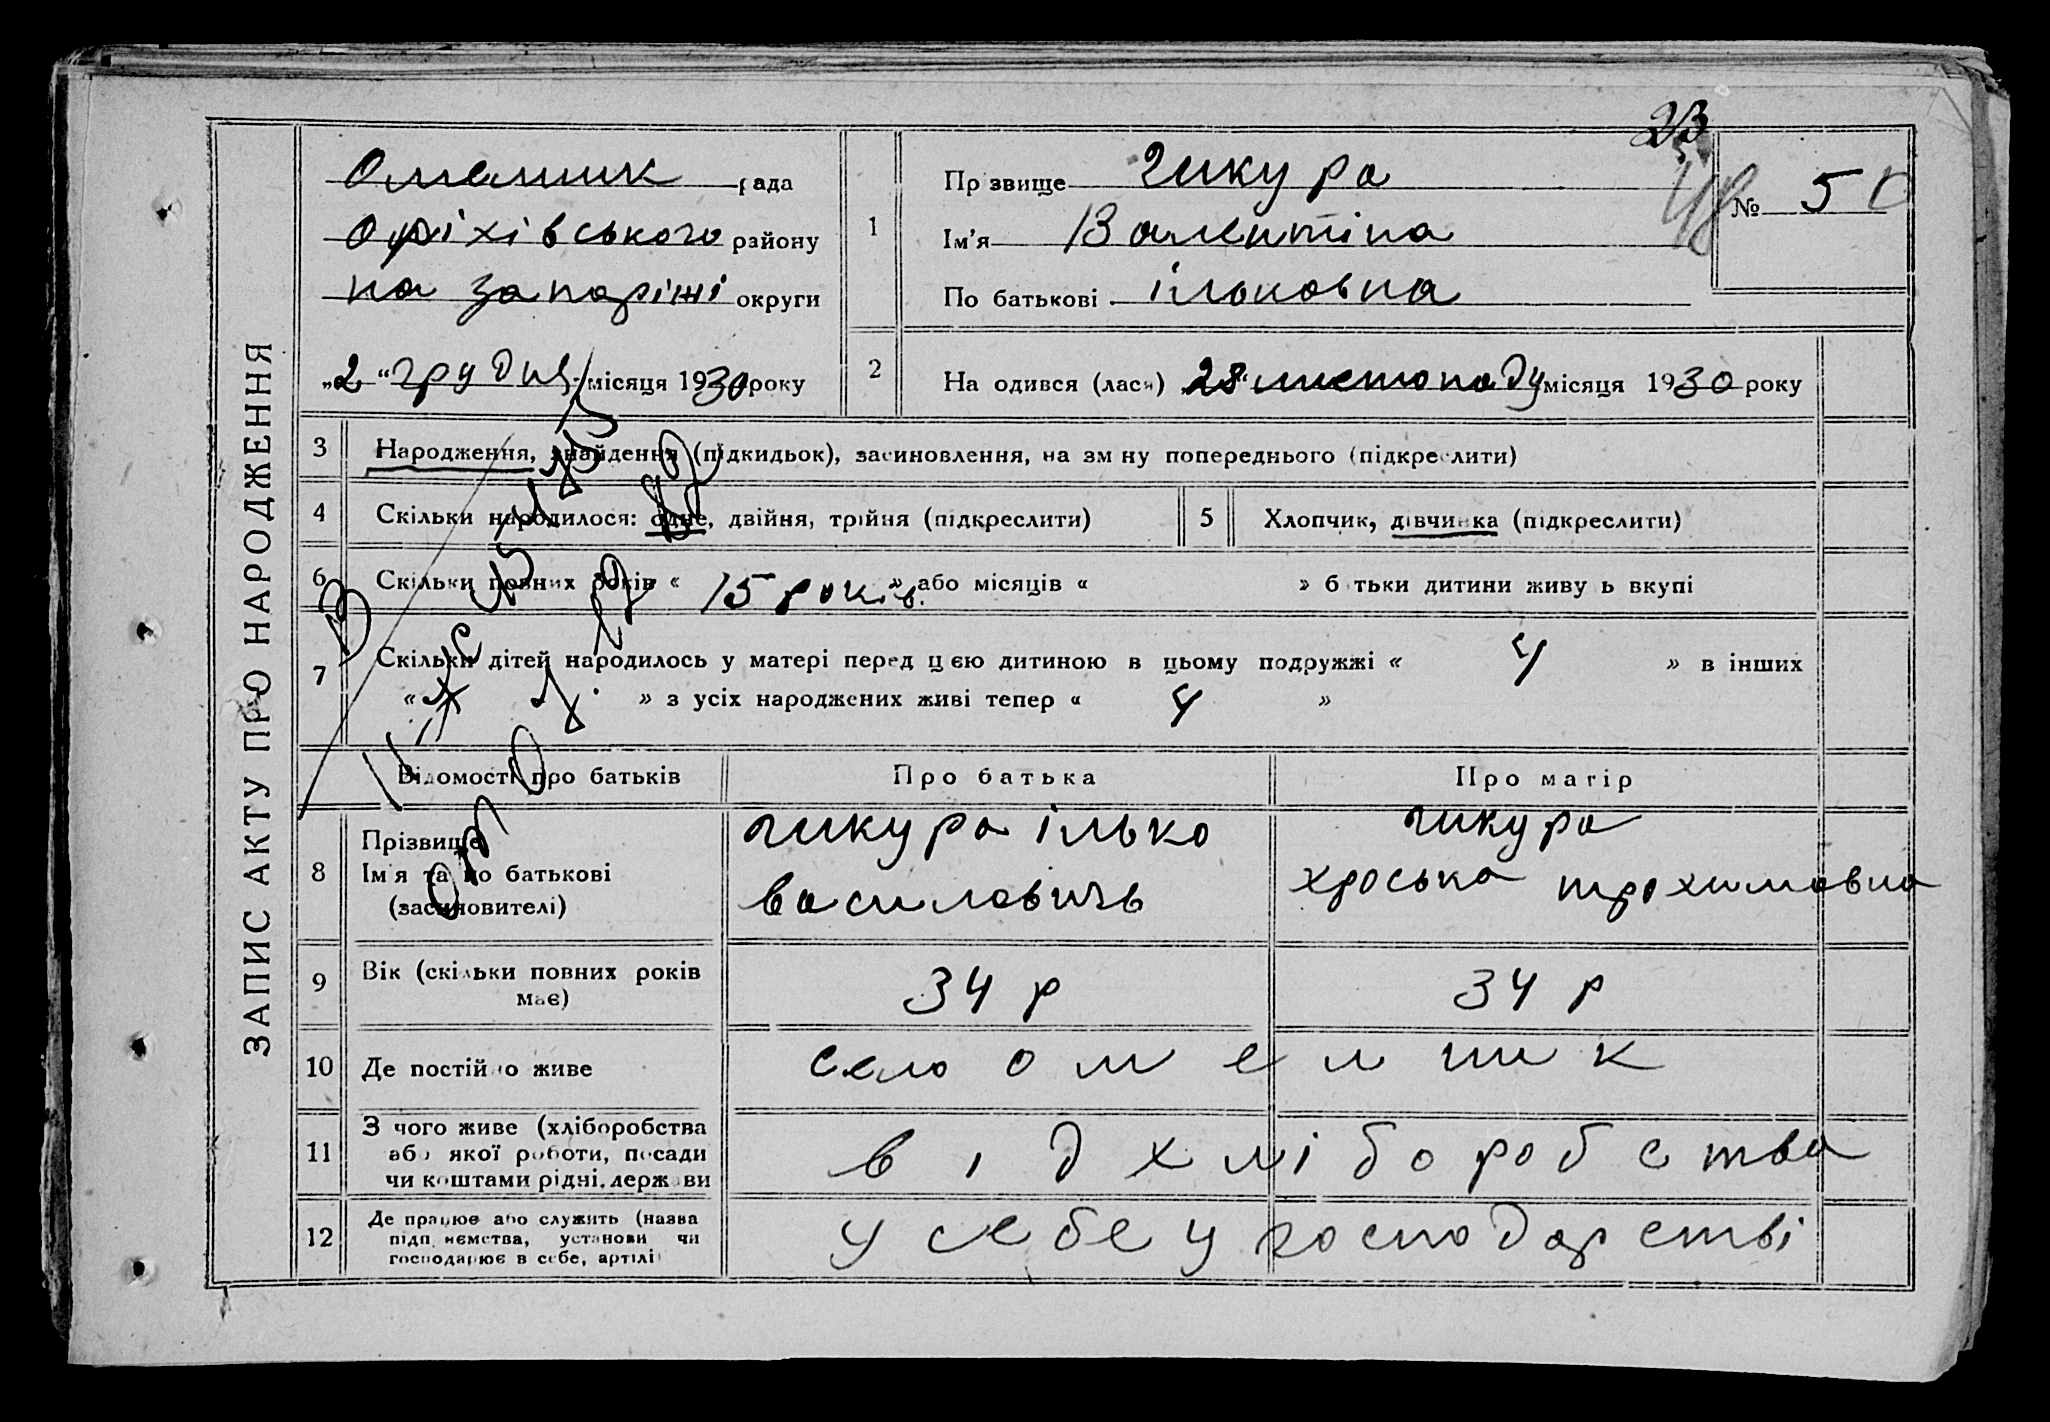 ЗАПИС АКТУ ПРО НАРОДЖЕННЯ
23
Омелник рада
Оріхівського району
на Запоріжі округи
„2“ грудня місяця 1930 року
1
Прізвище Чикура
Ім'я Валентіна
По батькові ільковна
№ 50
2
На одився (лася) 28 „листопаду місяця 1930 року
3 Народження, знайдення (підкидьок), засиновлення, на зм ну попереднього (підкреслити)
4 Скільки народилося: одне, двійня, трійня (підкреслити)
5 Хлопчик, дівчинка (підкреслити)
6 Скільки повних років « 15 років » або місяців « » б тьки дитини живу ь вкупі
7 Скільки дітей народилось у матері перед цією дитиною в цьому подружжі « 4 » в інших
« » з усіх народжених живі тепер « 4 »
Відомості про батьків
Про батька
Про матір
8 Прізвище
Ім'я та по батькові
(засиновителі)
чикура ілько
василовичь
чикура
хроська трохимовна
9 Вік (скільки повних років
має)
34 р
34 р
10 Де постійно живе
село омелник
11 З чого живе (хліборобства
або якої роботи, посади
чи коштами рідні, держави
від хліборобства
12 Де працює або служить (назва
підп иємства, установи чи
господарює в себе, артілі
у себе у господарстві